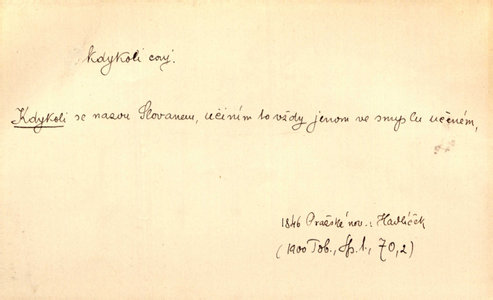 kdykoli conj.
Kdykoli se nazvu Slovanem, učiním to vždy jenom ve smyslu učeném,
1846 Pražské nov., Havlíček
(1900 Tob., Sp. 1, 70,2)